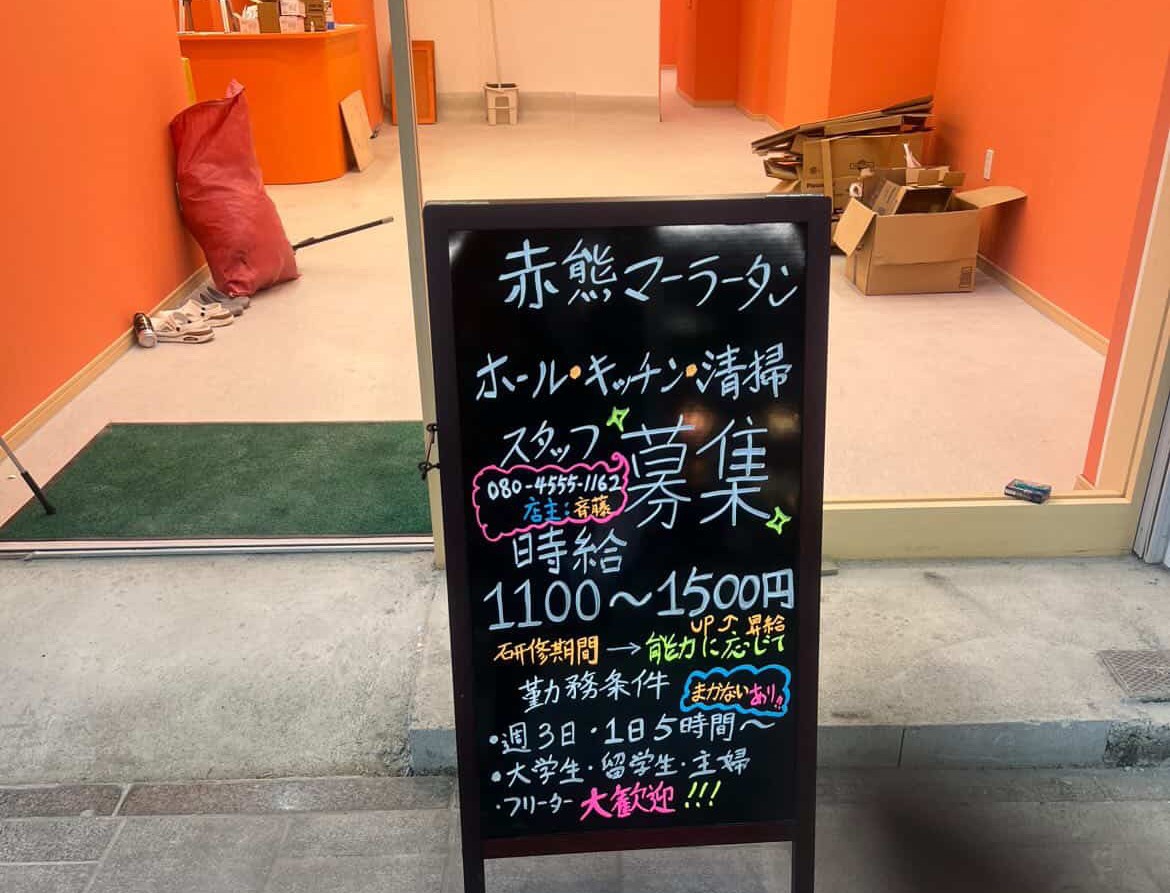 赤熊マーラータン
ホール・キッチン・清掃
スタッフ募集
080-4555-1162
店主:斉藤
時給
1100～1500円
UP⤴昇給
研修期間→能力に応じて
勤務条件
まかないあり!!
・週3日・1日5時間～
・大学生・留学生・主婦
・フリーター 大歓迎!!!